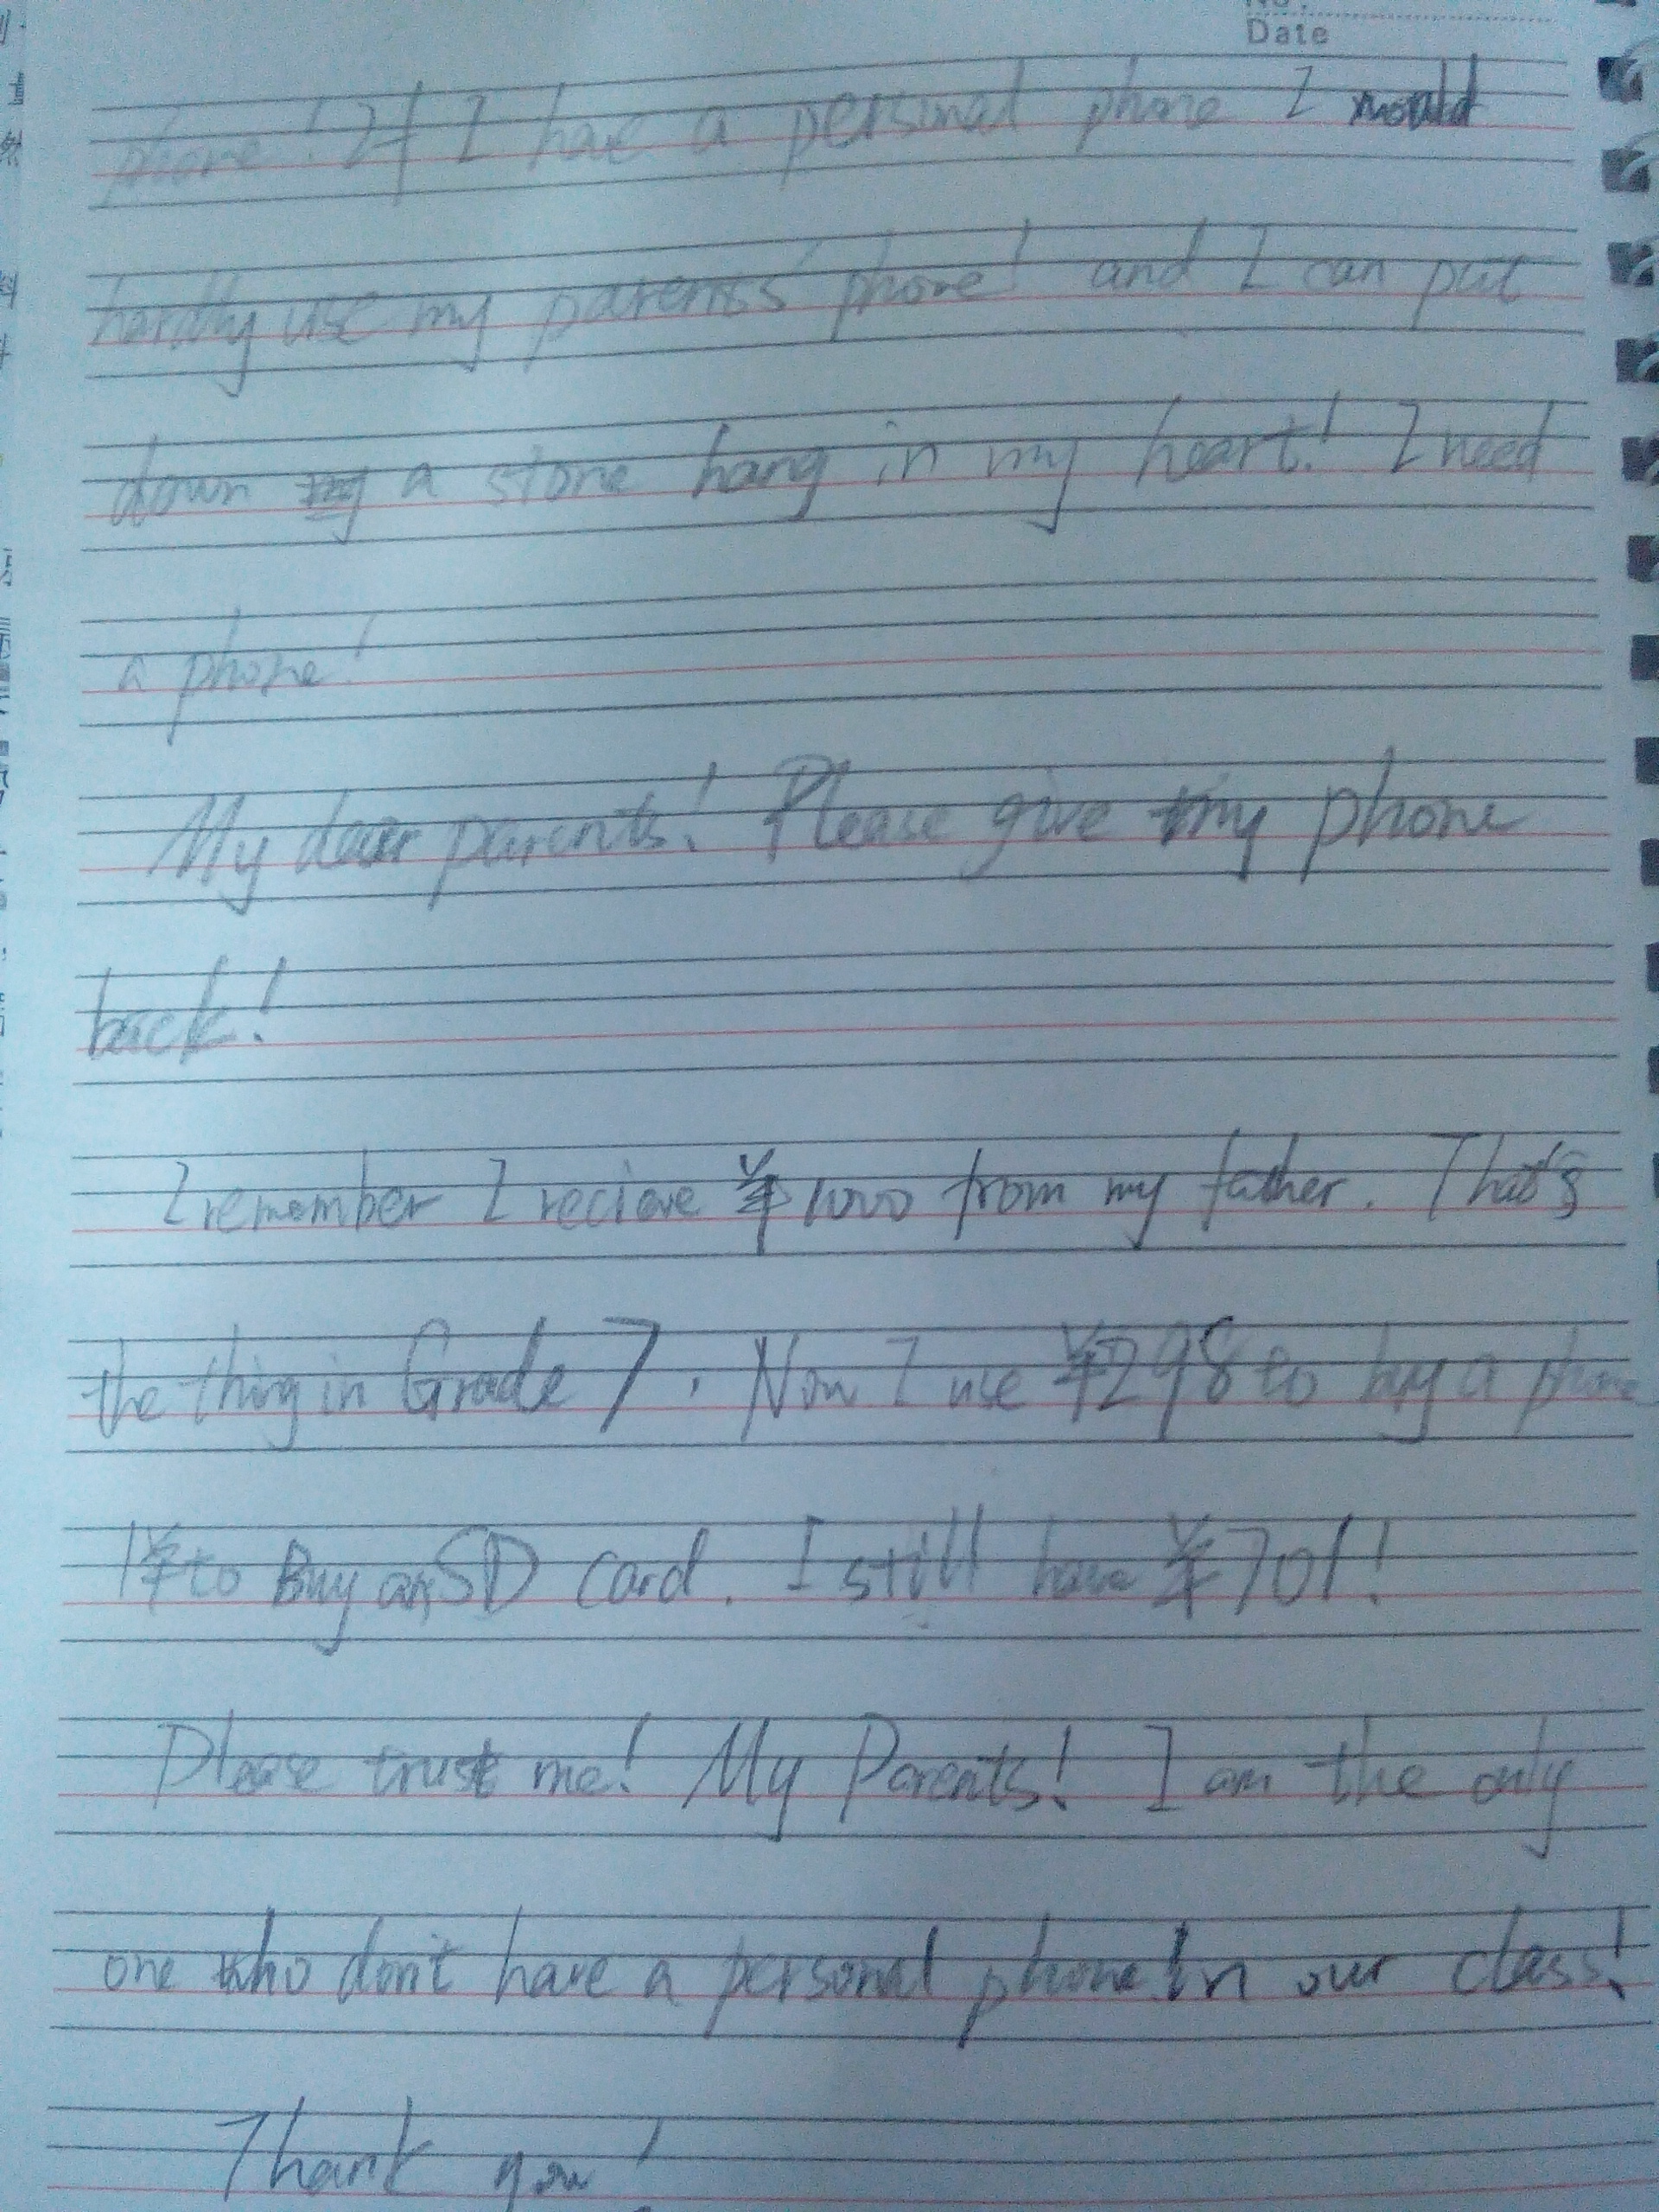 No.
Date
phone! If I have a personal phone I would
hardly use my parents' phone! and I can put
down a stone hang in my heart! I need
a phone!
My dear parents! Please give my phone
back!
I remember I recieve ¥1000 from my father. That's
the thing in Grade 7. Now I use ¥298 to buy a phone
1¥ to Buy an SD card. I still have ¥701!
Please trust me! My Parents! I am the only
one who don't have a personal phone! In our class!
Thank you!